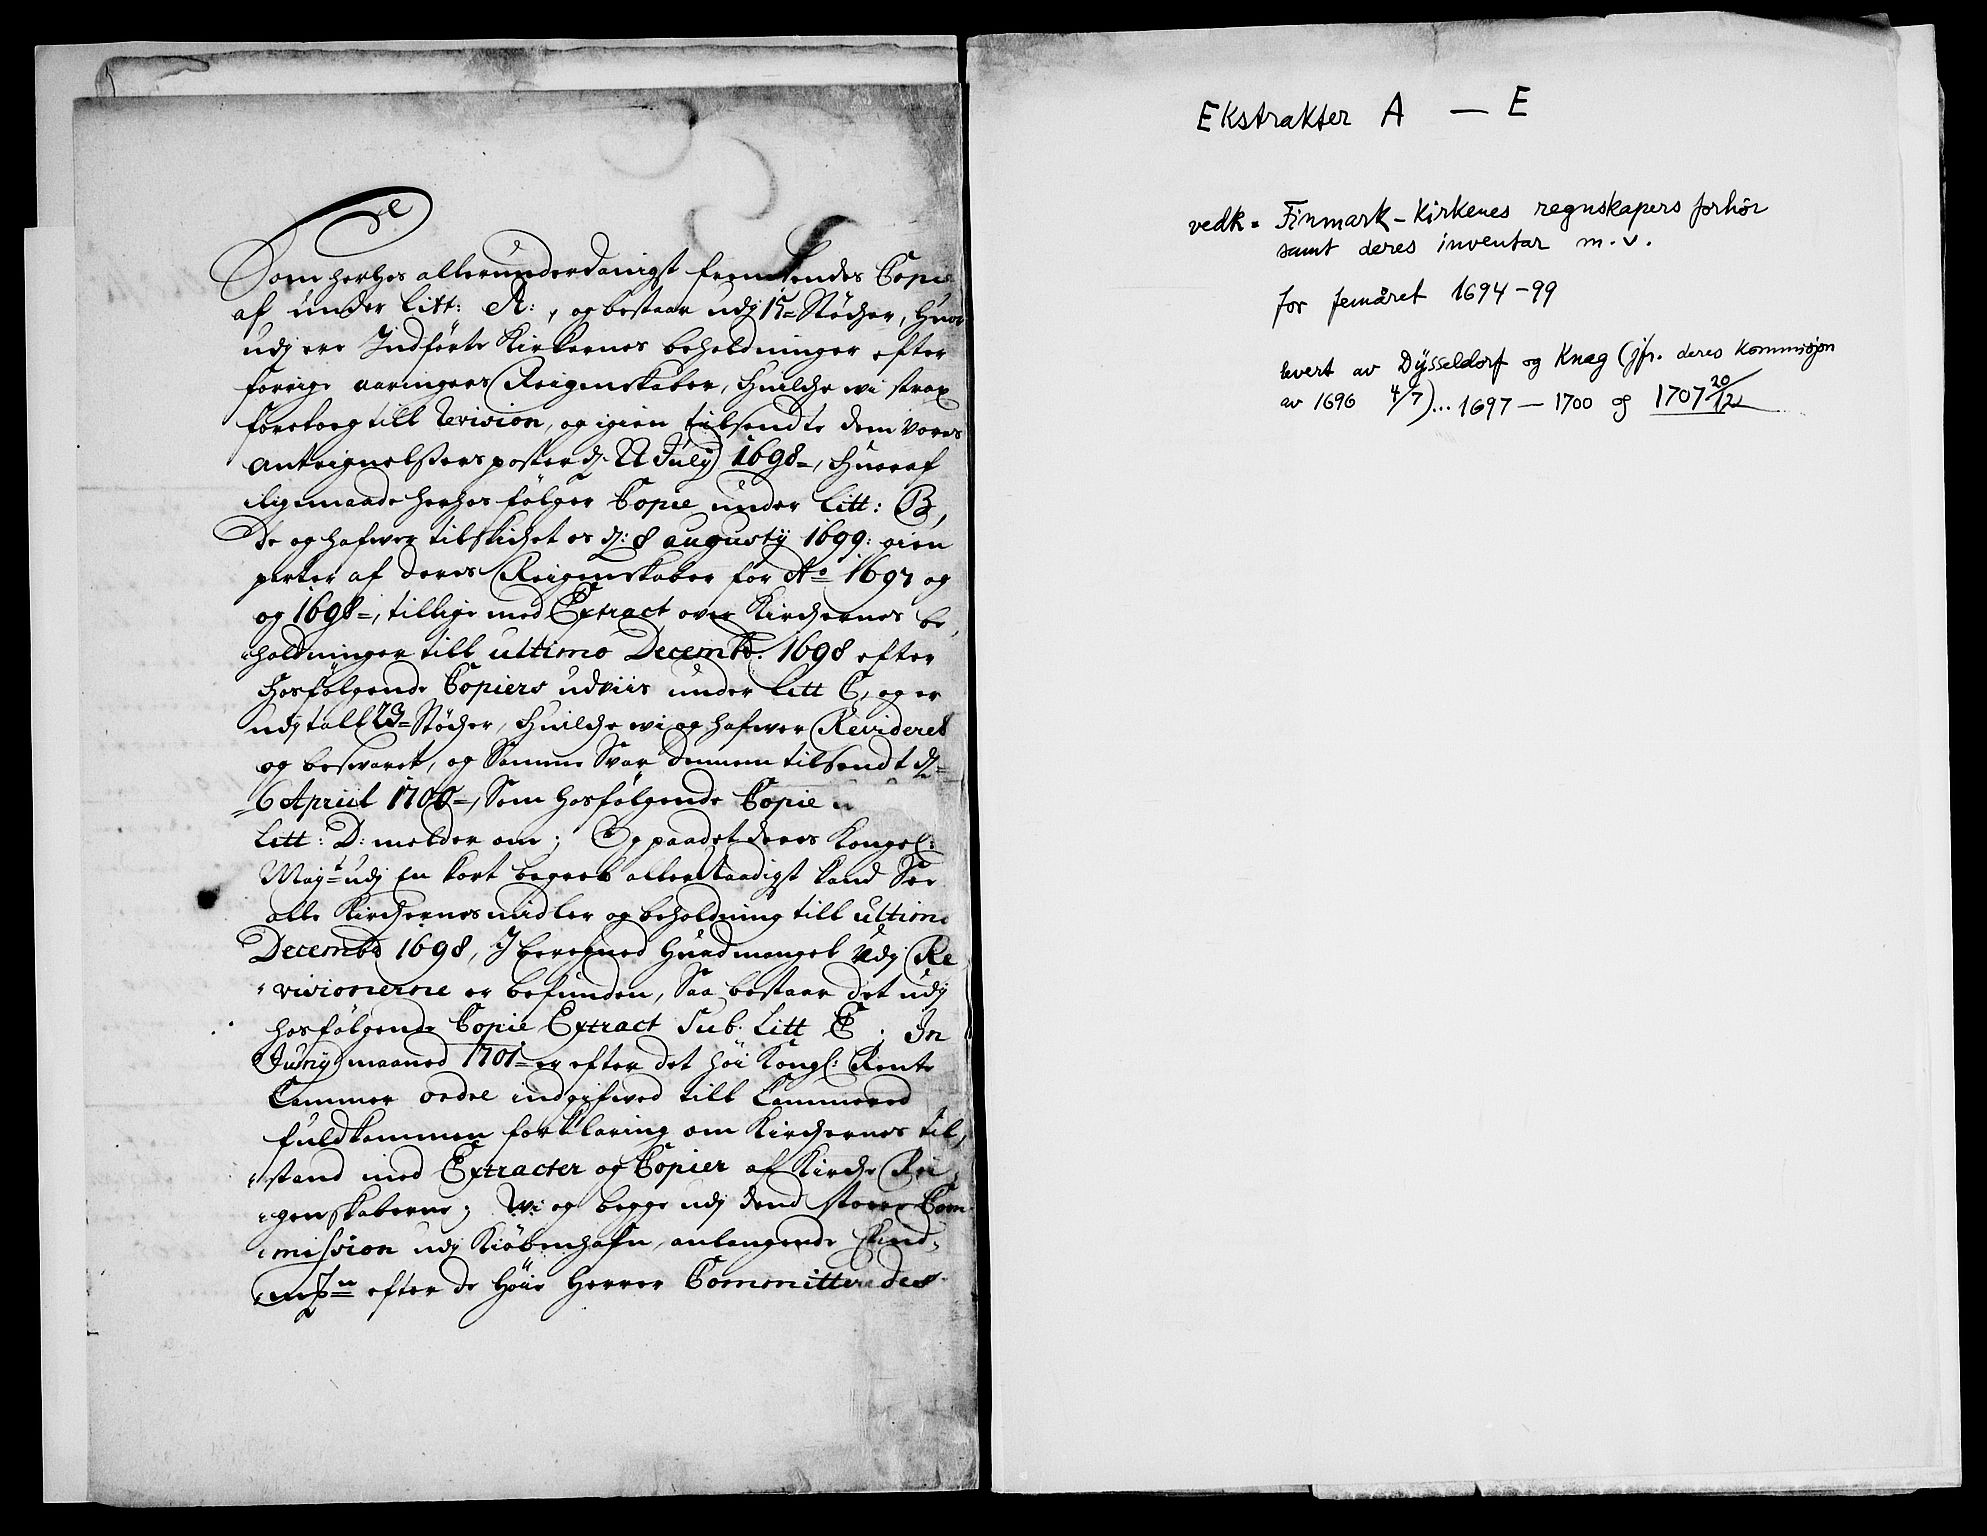 Som herhos allerunderdanigst fremsendes Copie
af under Litt: A:, og bestaar udj 15= Stöcher, Huor
udj ere Indförte Kirkernes beholdninger efter
forrige aaringers Reigenskaber, Huilche wi strax
foretoeg till Revision, og igien tilsendte dem vores
anteignelsers poster d. 22 Julij 1698=, Huoraf
ligemaade herhos fölger Copie under Litt: B,
De og hafwer tilskichet os d: 8 augustij 1699: gien
parter af deres Reigenskaber for Ao 1697 og
og 1698=, tillige med Extract over Kirchernes be,
holdninger till ultimo Decembr. 1698 efter
hosfölgende Copiers udviis under Litt C, og er
udj tall 23= Stöcher, Huilche wi og hafwer Revideret
og besvaret, og Samme Svar dennem tilsendt d=
6 Apriil 1700=, Som hosfölgende Copie
Litt: D: melder om; Og paadet deres Kongel:
Mayt udj En kort begreb allernaadigst kand See
alle Kirchernes midler og beholdning till ultimo
Decembr 1698, I beregned Huad mangel udj Re
visionerne er befunden, Saa bestaar det udj
hosfölgende Copie Extract Sub. Litt E; In
Junij maaned 1701= er efter det höi Kongl: Rente
Cammer ordre indgifwed till Cammered
fuldkommen forklaring om Kirchernes til,
stand med Extracter og Copier af Kirche Rei,
genskaberne; Wi og begge udj dend store Com
mission udj Kiöbenhafn, anlangende Find,
efter de Höie Herrer Committeredes
Ekstrakter A — E
vedk. Finmark-Kirkenes regnskapers forhör
samt deres inventar m.v.
for femåret 1694-99
levert av Dÿsseldorf og Knag (jfr. deres kommisjon
av 1696 4/7)... 1697 — 1700 og 1707 20/12